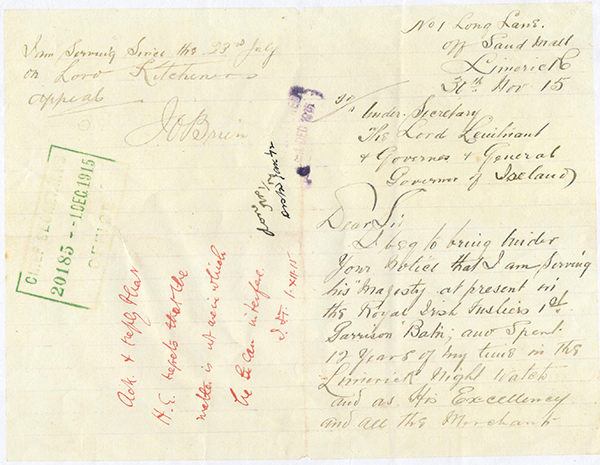 No 1 Long Lane.
off Sand Mall
Limerick
30th Nov 15
To/
Under Secretary
The Lord Lieutinant
& Governer & General
Governer of Ireland)
Dear Sir
I beg to bring under
Your notice that I am serving
his Majesty at present in
the Royal Irish Fusliers 1st
Garrison Batn; and spent
12 Years of my time in the
Limerick Night Watch
and as His Excellency
and all the Merchants
I am Serving Since the 23rd July
on Lord Kitcheners
appeal
J O Brien
CHIEF SECRETARY'S
20185 -1 DEC 1915
OFFICE
Ack. & reply that
H.E. regrets that the
matter is not one in which
he can interfere.
1.XII.15